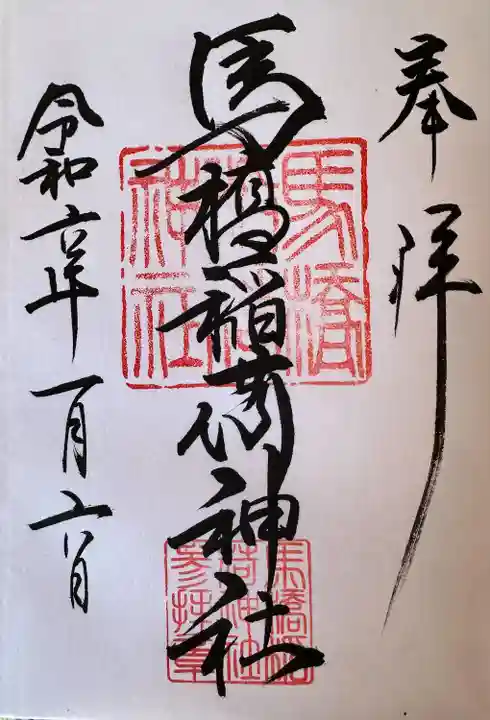 奉拝
馬橋稲荷神社
馬橋稲荷神社
馬橋稲荷神社参拝章
令和六年一月六日